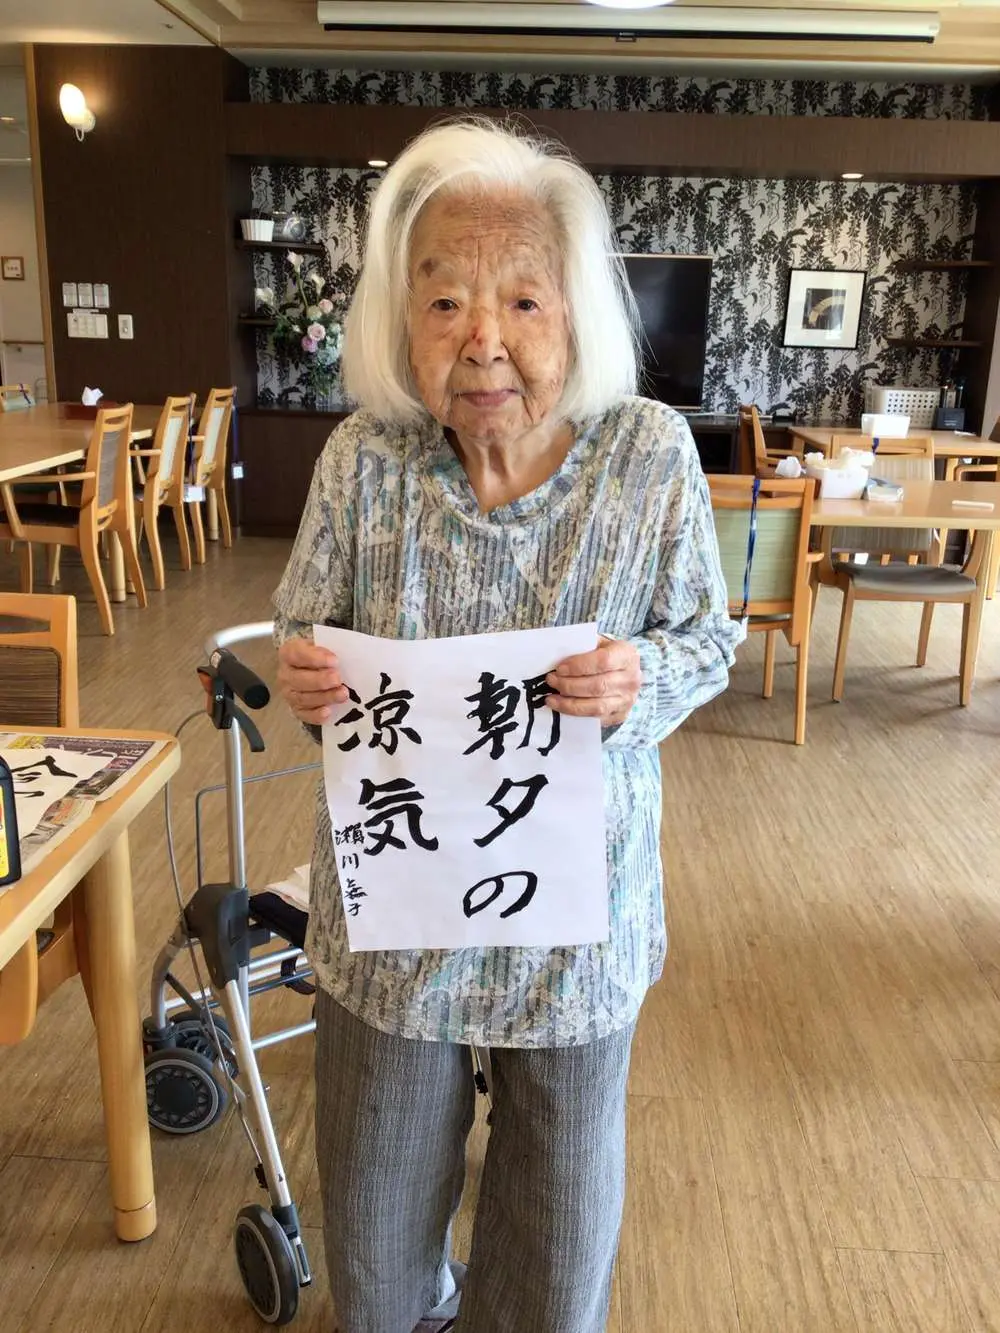 朝夕の
涼気
瀬川